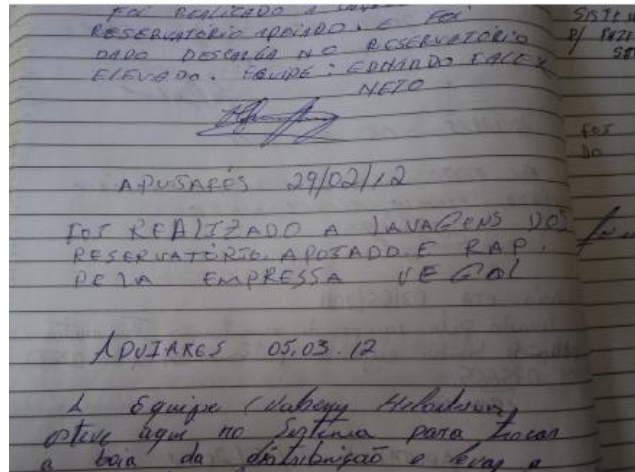 FOI REALICADO A
RESERVATÓRIO APOIADO. E FOI
DADO DESCARGA NO RESERVATÓRIO
ELEVADO. EQUIPE: EDNARDO E ALEX
NETO.
APUIARÉS 29/02/12
FOI REALIZADO A LAVAGENS DOS
RESERVATÓRIO. APOIADO. E RAP.
PELA EMPRESSA VEGOL
APUIARES 05.03.12
A Equipe
esteve aqui no Sistema para trocar
a boia da distribuição e levar o
SISTEMA
P/ FAZE
FOI
DO